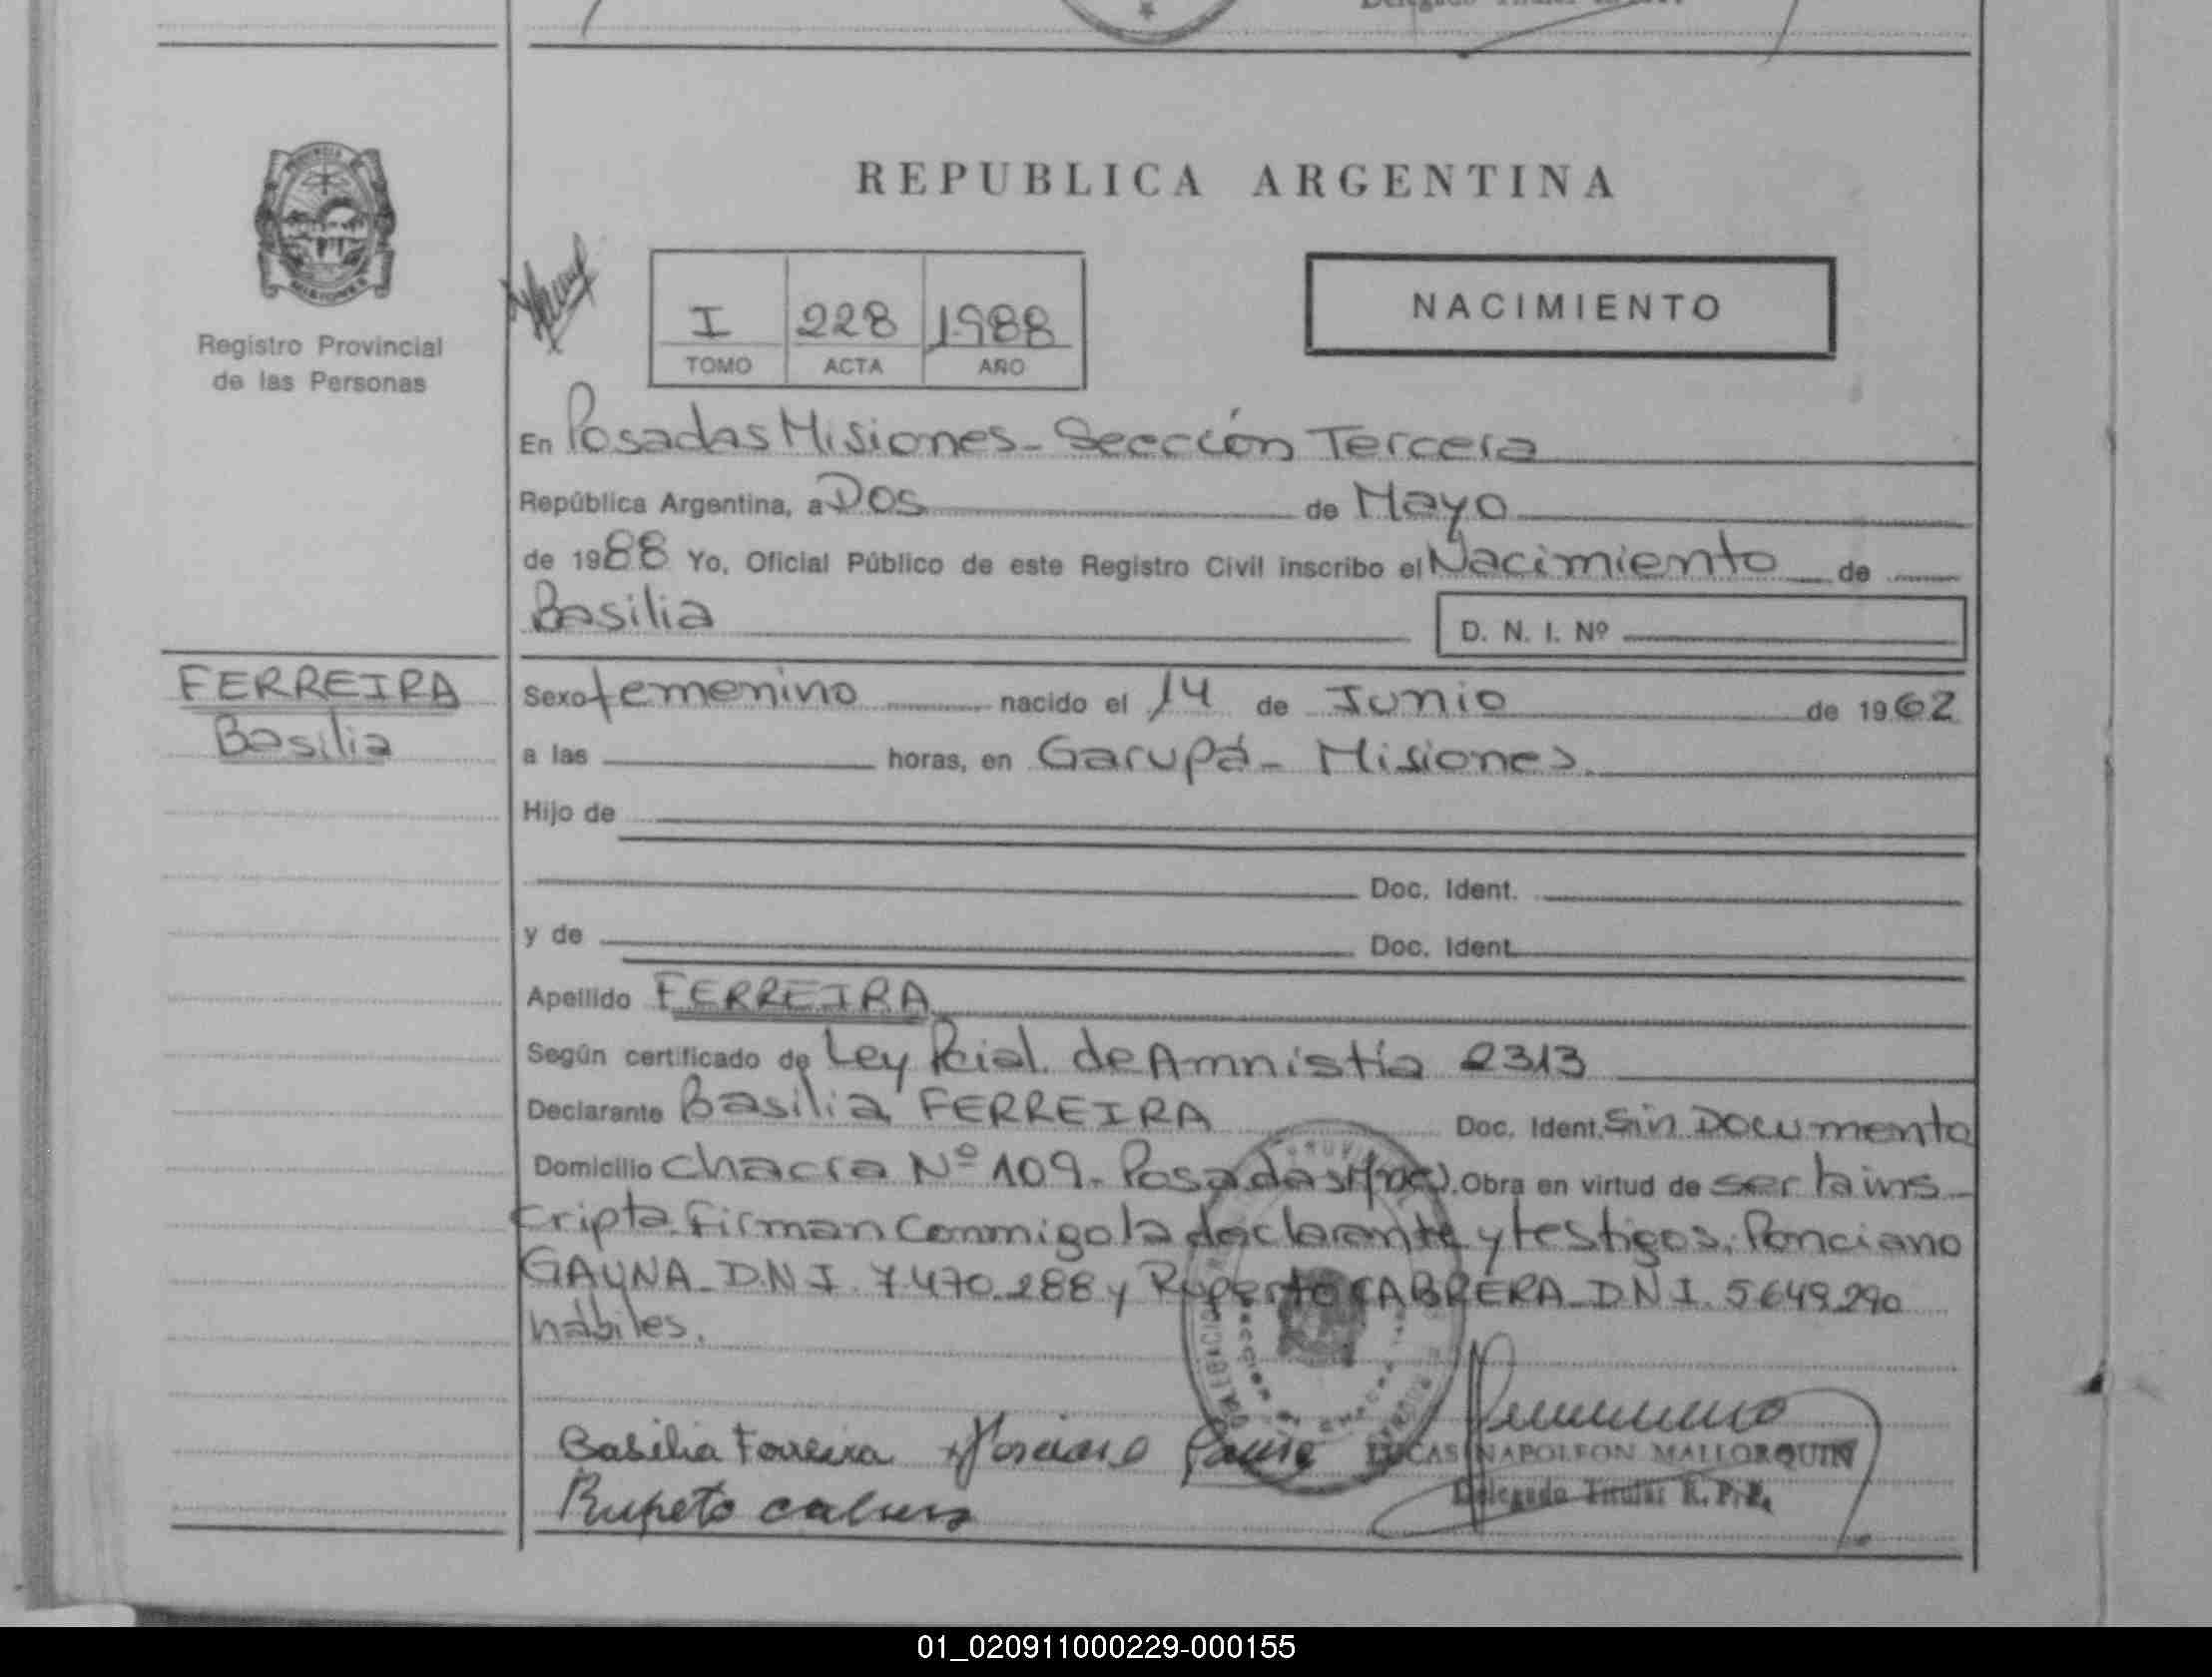 REPUBLICA ARGENTINA
Registro Provincial
de las Personas
I 228 1988
TOMO ACTA AÑO
NACIMIENTO
En Posadas Misiones - Sección Tercera
República Argentina, a Dos de Mayo
de 1988 Yo, Oficial Público de este Registro Civil inscribo el Nacimiento de
Basilia
D. N. I. Nº
FERREIRA
Basilia
Sexo femenino nacido el 14 de Junio de 1962
a las horas, en Garupá - Misiones.
Hijo de
Doc. Ident.
y de Doc. Ident.
Apellido FERREIRA
Según certificado de Ley Pcial. de Amnistía 2313
Declarante Basilia FERREIRA Doc. Ident. Sin Documento
Domicilio Chacra Nº 109 - Posadas (Mnes). Obra en virtud de ser la ins-
cripta. Firman conmigo la declarante y testigos, Ponciano
GAUNA - D.N.I. 7.470.288 y Ruperto CABRERA - D.N.I. 5649290
hábiles.
Basilia Ferreira Ponciano Gauna
LUCAS NAPOLEON MALLORQUIN
Rupeto cabrera
Delegado Titular R. P. P.
01_020911000229-000155